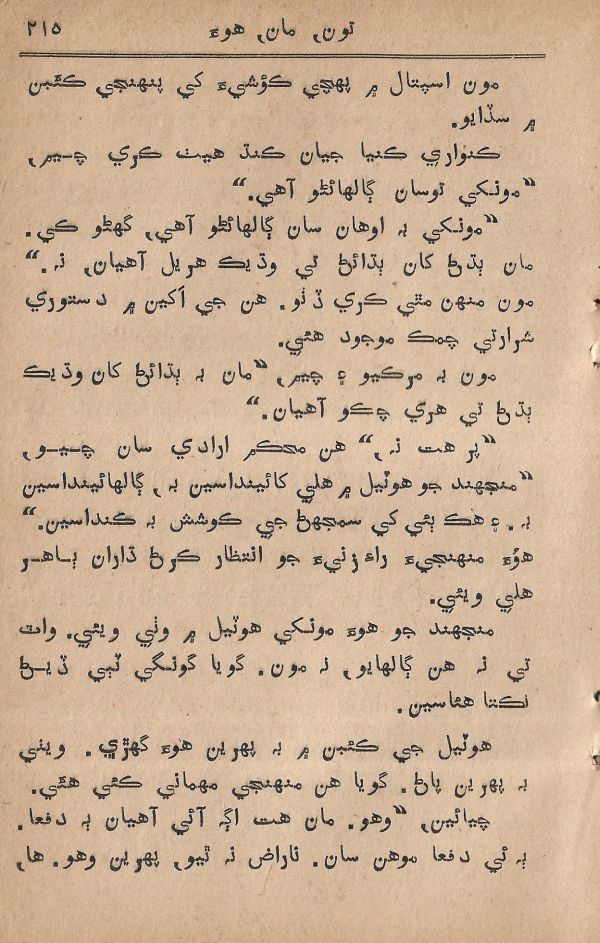 تون, مان, هوءَ ٢١٥
مون اسپتال ۾ پهچي ڪؤشيءَ کي پنهنجي ڪئبن
۾ سڏايو.
ڪنواري ڪنيا جيان ڪنڌ هيٺ ڪري چيم,
”مونکي توسان ڳالهائڻو آهي.“
”مونکي بہ اوهان سان ڳالهائڻو آهي, گهڻو ڪي.
مان ٻڌڻ کان ٻڌائڻ تي وڌيڪ هريل آهيان, نہ.“
مون منهن مٿي ڪري ڏٺو. هن جي اَکين ۾ دستوري
شرارتي چمڪ موجود هئي.
مون بہ مرڪيو ۽ چيم, ”مان بہ ٻڌائڻ کان وڌيڪ
ٻڌڻ تي هري چڪو آهيان.“
”پر هت نہ,“ هن محڪم ارادي سان چيو,
”منجهند جو هوٽيل ۾ هلي کائينداسين بہ, ڳالهائينداسين
بہ. ۽ هڪ ٻئي کي سمجهڻ جي ڪوشش بہ ڪنداسين.“
هوُءَ منهنجيءَ راءِ زنيءَ جو انتظار ڪرڻ ڌاران ٻاهر
هلي ويئي.
منجهند جو هوءَ مونکي هوٽيل ۾ وٺي ويئي. واٽ
تي نہ هن ڳالهايو, نہ مون. گويا گونگي ٽٻي ڏيڻ
نڪتا هئاسين.
هوٽيل جي ڪئبن ۾ بہ پهرين هوءَ گهڙي. ويٺي
بہ پهرين پاڻ. گويا هن منهنجي مهماني ڪئي هئي.
چيائين, ”وهو. مان هت اڳہ آئي آهيان ٻہ دفعا.
ٻہ ئي دفعا موهن سان. ناراض نہ ٿيو, پهرين وهو. ها,